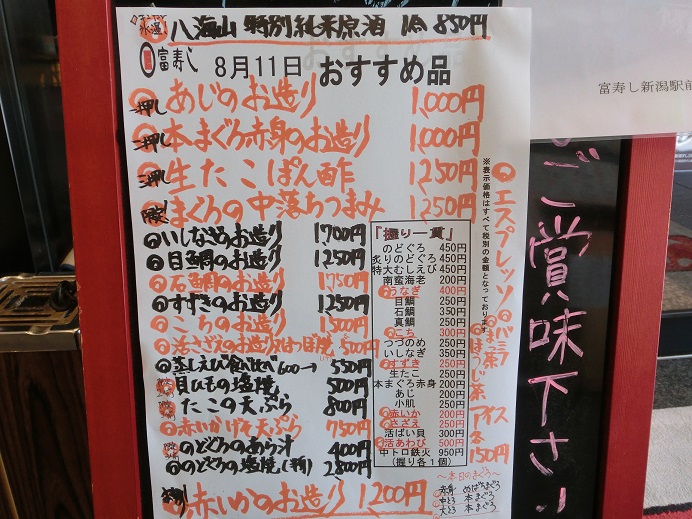 氷温 八海山 特別純米原酒 1合 850円
富寿し 8月11日 おすすめ品
一押し あじのお造り 1,000円
二押し 本まぐろ赤身のお造り 1,000円
三押し 生たこぽん酢 1250円
まぐろの中落ちつまみ 1250円
いしなぎのお造り 1700円
目鯛のお造り 1250円
石鯛のお造り 1750円
すずきのお造り 1250円
こちのお造り 1500円
活さざえのお造り又はつぼ焼 1500円
蒸しえび食べ比べ 600→ 550円
貝ひもの塩焼 500円
たこの天ぷら 800円
赤いかげそ天ぷら 750円
のどぐろのあら汁 400円
のどぐろの塩焼(半身) 2800円
赤いかのお造り 1200円
『握り一貫』
のどぐろ 450円
炙りのどぐろ 450円
特大むしえび 450円
南蛮海老 200円
うなぎ 400円
目鯛 250円
石鯛 350円
真鯛 250円
こち 300円
つづのめ 250円
いしなぎ 350円
すずき 250円
生たこ 250円
本まぐろ赤身 200円
あじ 200円
小肌 250円
赤いか 200円
さざえ 250円
活ばい貝 300円
活あわび 500円
中トロ鉄火 950円
(握り各1個)
※表示価格はすべて税別の金額となっております
エスプレッソ
バニラ
ほうじ茶
アイス
各150円
〜本日のまぐろ〜
赤身 めばちまぐろ
中とろ 本まぐろ
大とろ 本まぐろ
富寿し新潟駅前
ご賞味下さい